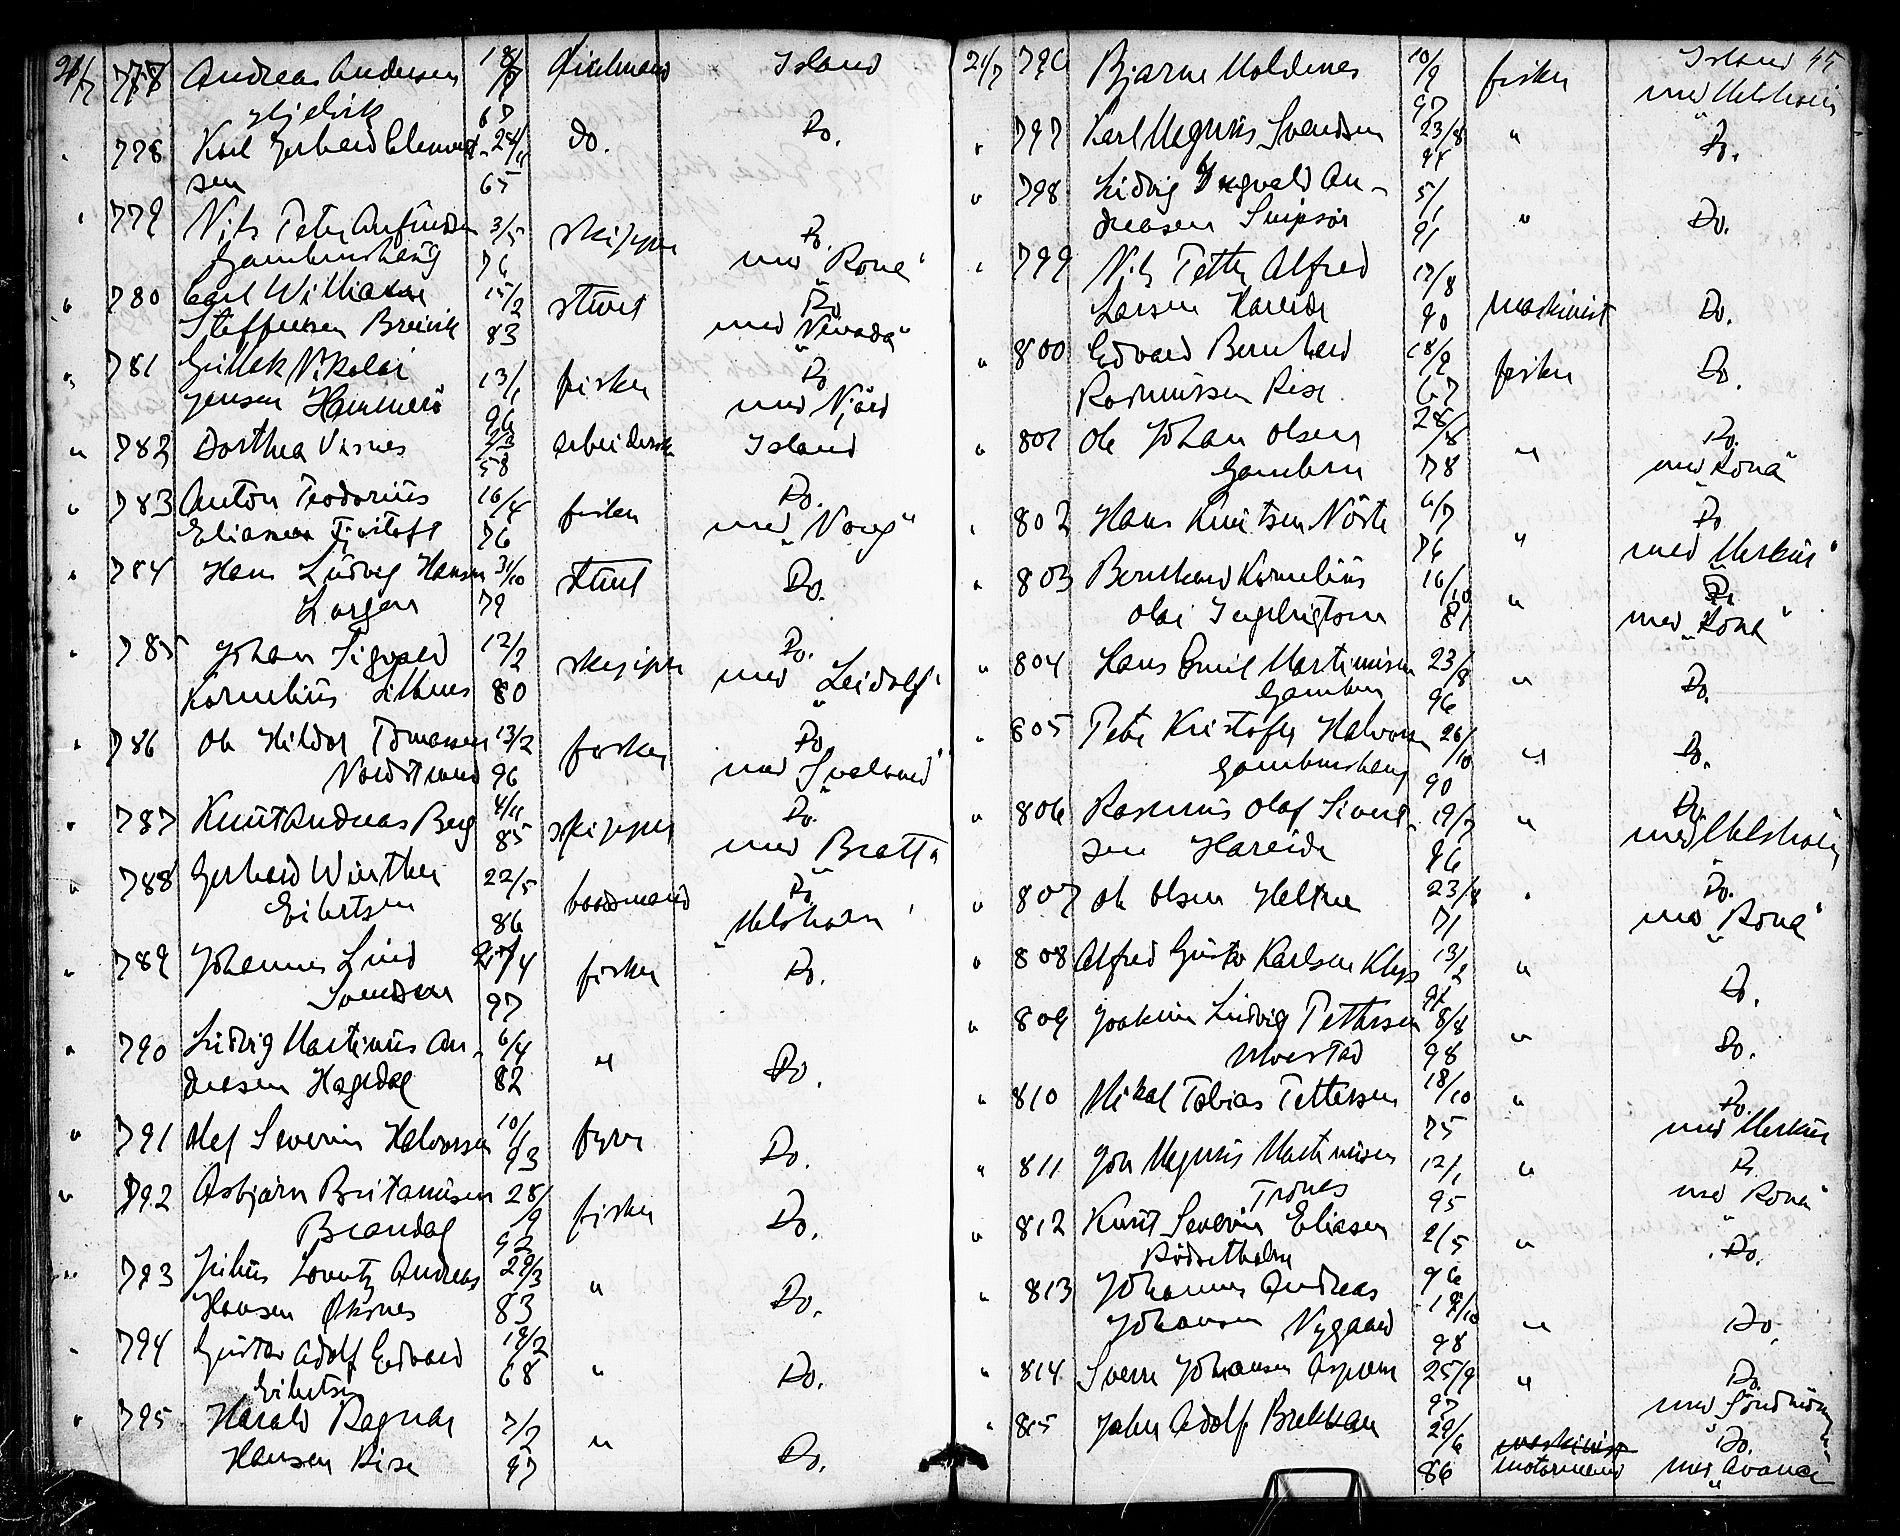 21/7 777 Andreas Andersen 18/7 fiskemand Island
Hjelvik 67
" 778 Karl Gerhard Clement- 24/11 do. Do.
sen 65
" 779 Nils Peter Anfindsen 3/5 skipper Do.
Gamlemshaug 76 med "Rona"
" 780 Carl William 15/2 stuert Do
Steffensen Breivik 83 med "Nevada"
" 781 Nikolai 13/1 fisker Do
Jensen Hammerö 96 med Njård
" 782 Dorthea Visnes 2/3 58 arbeidersk Island
" 783 Anton Teodorius 16/4 fisker Do.
Eliassen Fjørtoft 76 med "Norg"
" 784 Hans Ludvig Hansen 31/10 stuert Do.
Langen 79
" 785 Johan Sigvald 12/2 skipper Do.
Kornelius Litlenes 80 med "Leidolf"
" 786 Ole Hildor Tomassen 13/2 fisker Do
Nordstrand 96 med "Svalund"
" 787 Knut Andreas Berg 4/11 85 skipper Do.
med "Bratt"
" 788 Gerhard Winther 22/5 baadsmand Do
Eilertsen 86 "Melshorn"
" 789 Johannes Lind 27/4 fisker Do.
Svendsen 97
" 790 Ludvig Martinius An- 6/4 " Do.
dreasen Hagedal 82
" 791 Olef Severin Halvorsen 10/1 93 fyrb Do.
" 792 Asbjørn Britanusen 28/9 fisker Do.
Brandal 92
" 793 Julius Lorentz Andreas 29/3 " Do.
Hansen Oksnes 83
" 794 Gustav Adolf Edvard 19/2 " Do.
Eilertsen 68
" 795 Harald Ragnar 7/7 " Do.
Hansen Rise 97
21/7 796 Bjarne Moldenes 10/9 fisker Island 45
97 med "Melshorn
" 797 Karl Magnus Svendsen 23/8 " Do.
94
" 798 Ludvig Ingvald An- 5/1 " Do.
dreasen Snipsør 91
" 799 Nils Petter Alfred 17/8
Larsen Hareide 90 maskinist Do.
" 800 Edvard Bernhard 18/9 fisker Do.
Rasmussen Rise 67
" 801 Ole Johan Olsen 28/8 " Do.
Gamlem 78 med "Rona"
" 802 Hans Knutsen Nörve 6/7 " Do
76 med "Merkur"
" 803 Bernhard Kornelius 16/10 " Do
Olai Ingebrigtsen 81 med "Rona"
" 804 Hans Emil Martinusen 23/8 " Do.
Gamlem 96
" 805 Peter Kristofer Halvorsen 26/10 " Do.
Gamlemshaug 90
" 806 Rasmus Olaf Sivert- 19/7 " Do
sen Hareide 96 med "Melshorn
" 807 Ole Olsen Heltne 23/8 " Do.
71 med "Rona"
" 808 Alfred Gustav Karlsen Kleps 13/2 " Do.
" 809 Joakim Ludvig Pettersen 8/8 " Do.
Ulvestad 98
" 810 Mikal Tobias Pettersen 18/10 " Do.
75 med Merkur
" 811 Jon Magnus Martinusen 12/1 " Do
Trones 95 med "Rona"
" 812 Knut Severin Eliasen 2/5 " Do.
Rödsetholm 96
" 813 Johannes Andreas
Johansen Nygaard 19/10 98 " Do.
" 814 Sverre Johansen Aspevm 25/9 " Do.
97 med
" 815 John Adolf Brekkan 29/6 maskinist "Do.
86 motormand med "Avance"